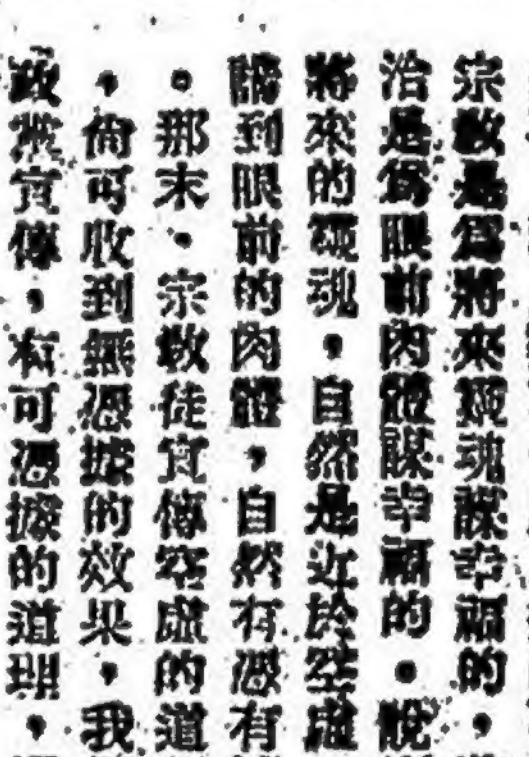 宗教是爲將來靈魂謀幸福的，
治是爲眼前肉體謀幸福的。說
將來的靈魂，自然是近於空虛
講到眼前的肉體，自然有憑有
。那末，宗敎徒宣傳空虛的道
，尚可收到無憑據的效果，我
政黨宣傳，有可憑據的道理，